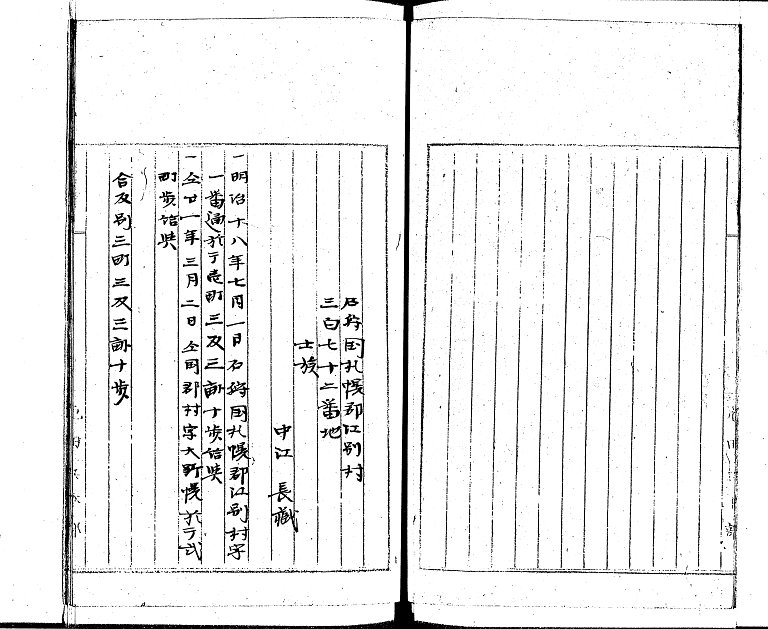 石狩国札幌郡江別村
三百七十二番地
士族
中江 長蔵
一明治十八年七月一日石狩国札幌郡江別村字
一番通於テ壱町三反三畝十歩給與
一仝廿一年三月二日仝国郡村字大野幌於テ弐
町歩給與
合反別三町三反三畝十歩